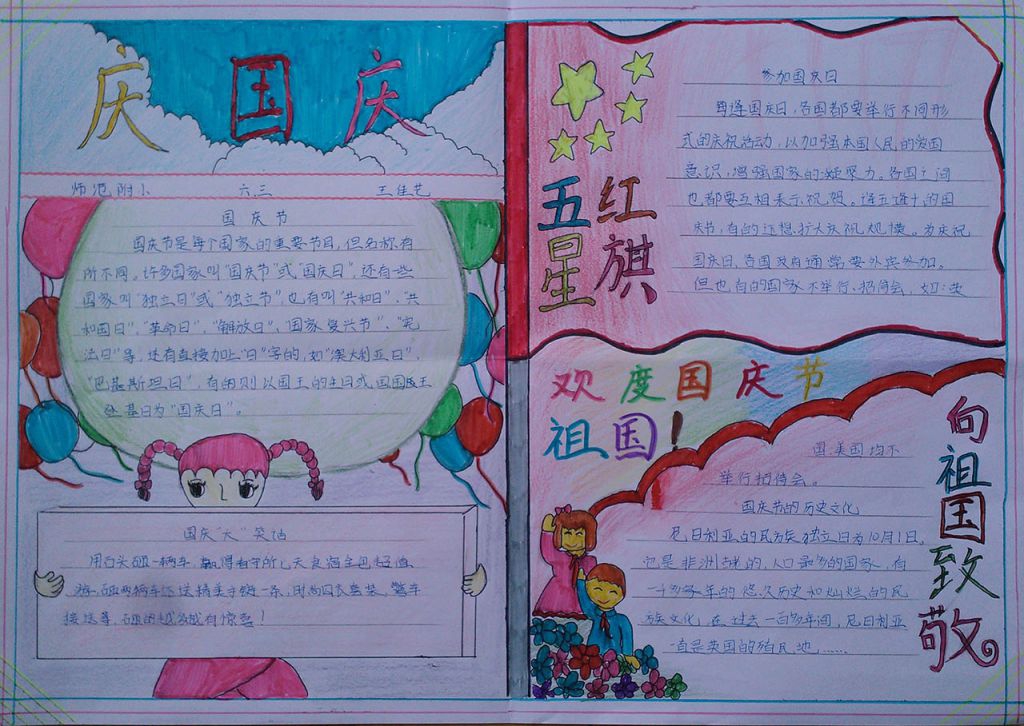 庆国庆
师范附小 六三 王佳艺
国庆节
国庆节是每个国家的重要节日,但名称有
所不同。许多国家叫“国庆节”或“国庆日”,还有些
国家叫“独立日”或“独立节”,也有叫“共和日”、“共
和国日”、“革命日”、“解放日”、“国家复兴节”、“宪
法日”等,还有直接加上“日”字的,如“澳大利亚日”、
“巴基斯坦日”,有的则以国王的生日或
基日为“国庆日”。
国庆“大”笑话
用石头砸一辆车
砸两辆车 送精美手链一条,时尚 套装,警车
接送等,砸的越多越有惊喜!
五星
红旗
参加国庆日
每逢国庆日,各国都要举行不同形
式的庆祝活动,以加强本国人民的爱国
意识,增强国家的凝聚力。各国之间
也都要互相表示祝贺。逢五逢十的国
庆节,有的还想扩大庆祝规模。为庆祝
国庆日,各国政府通常要 参加。
但也有的国家不举行招待会,如:英
欢度国庆节
祖国!
国、美国均不
举行招待会。
国庆节的历史文化
尼日利亚的民族独立日为10月1日。
它是非洲 的,人口最多的国家,有
一千多年的悠久历史和灿烂的民
族文化,在过去一百多年间,尼日利亚
一直是英国的殖民地……
向祖国致敬